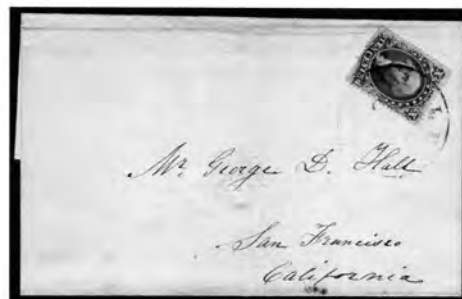 Mr. George D. Hall
San Francisco
California